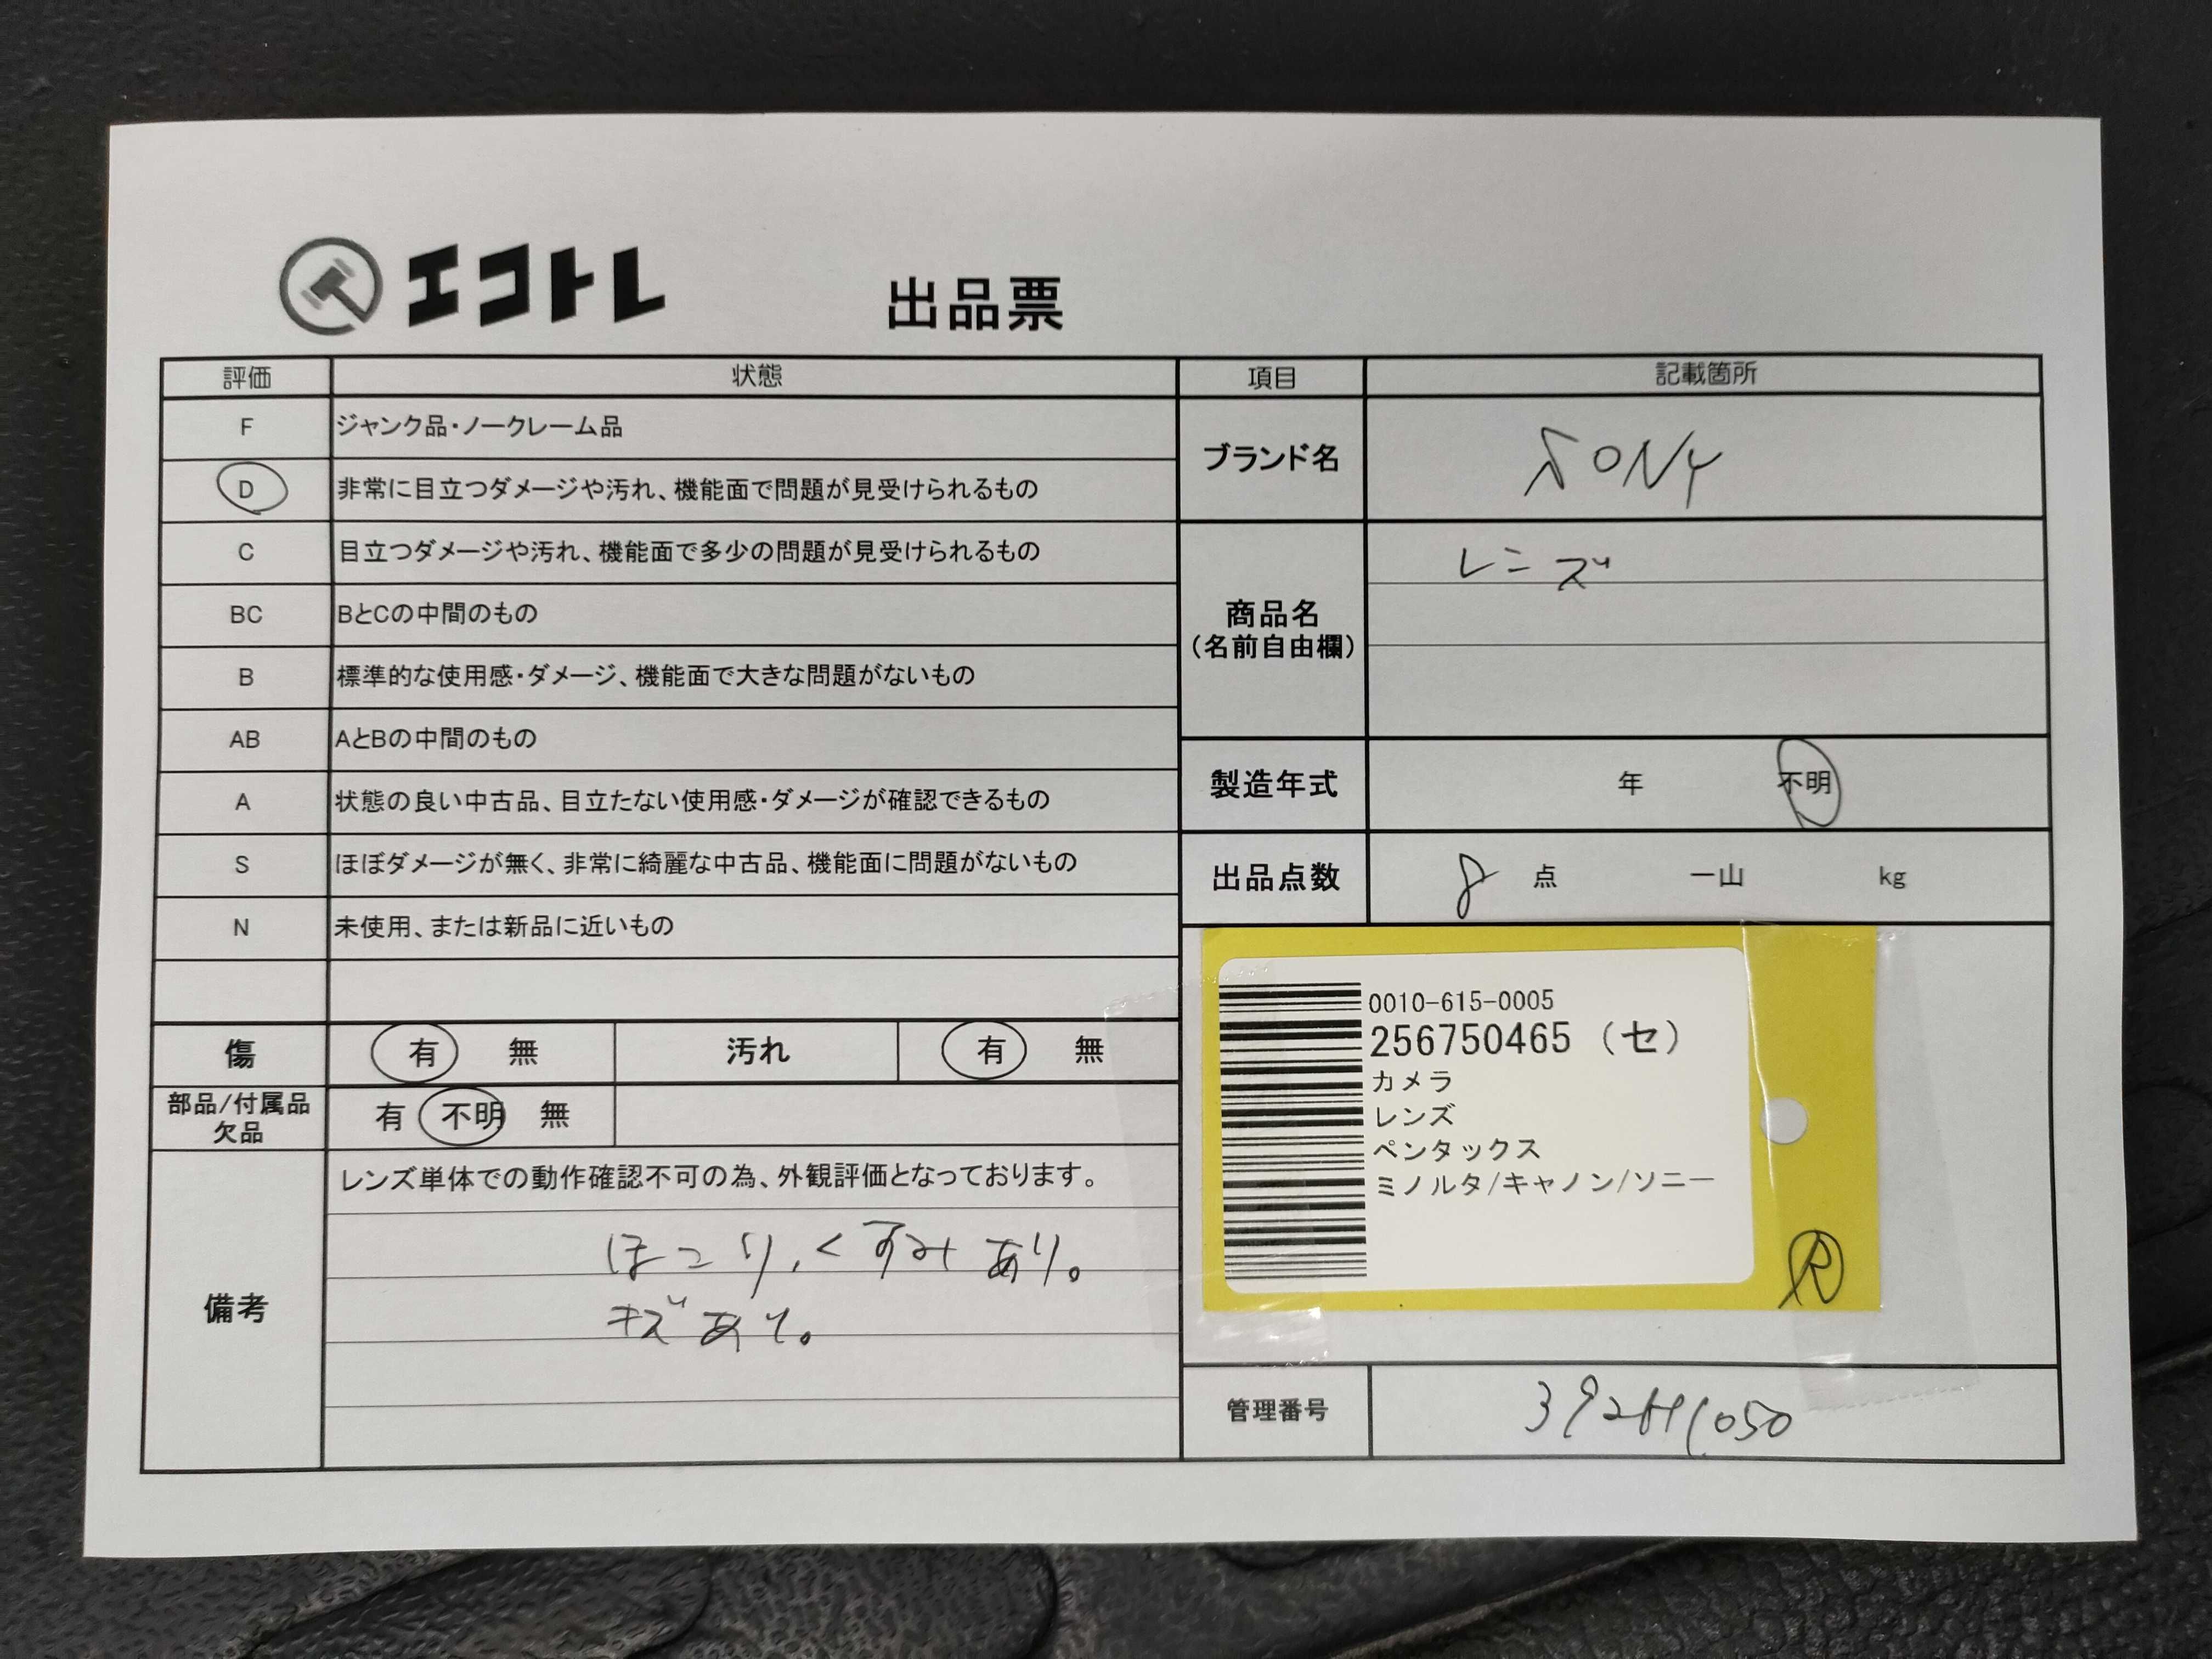 エコトレ
出品票
評価 状態
F ジャンク品・ノークレーム品
D 非常に目立つダメージや汚れ、機能面で問題が見受けられるもの
C 目立つダメージや汚れ、機能面で多少の問題が見受けられるもの
BC BとCの中間のもの
B 標準的な使用感・ダメージ、機能面で大きな問題がないもの
AB AとBの中間のもの
A 状態の良い中古品、目立たない使用感・ダメージが確認できるもの
S ほぼダメージが無く、非常に綺麗な中古品、機能面に問題がないもの
N 未使用、または新品に近いもの
傷 有 無 汚れ 有 無
部品/付属品
欠品
有 不明 無
備考
レンズ単体での動作確認不可の為、外観評価となっております。
ほこり、くすみあり。
キズあり。
項目 記載箇所
ブランド名 SONY
商品名
(名前自由欄)
レンズ
製造年式 年 不明
出品点数 8 点 一山 kg
0010-615-0005
256750465 (セ)
カメラ
レンズ
ペンタックス
ミノルタ/キャノン/ソニー
R
管理番号